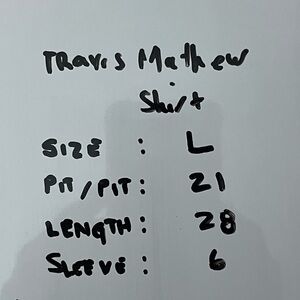 TRAVIS Mathew
Shirt
SIZE : L
PIT/PIT: 21
LENGTH: 28
SLEEVE: 6